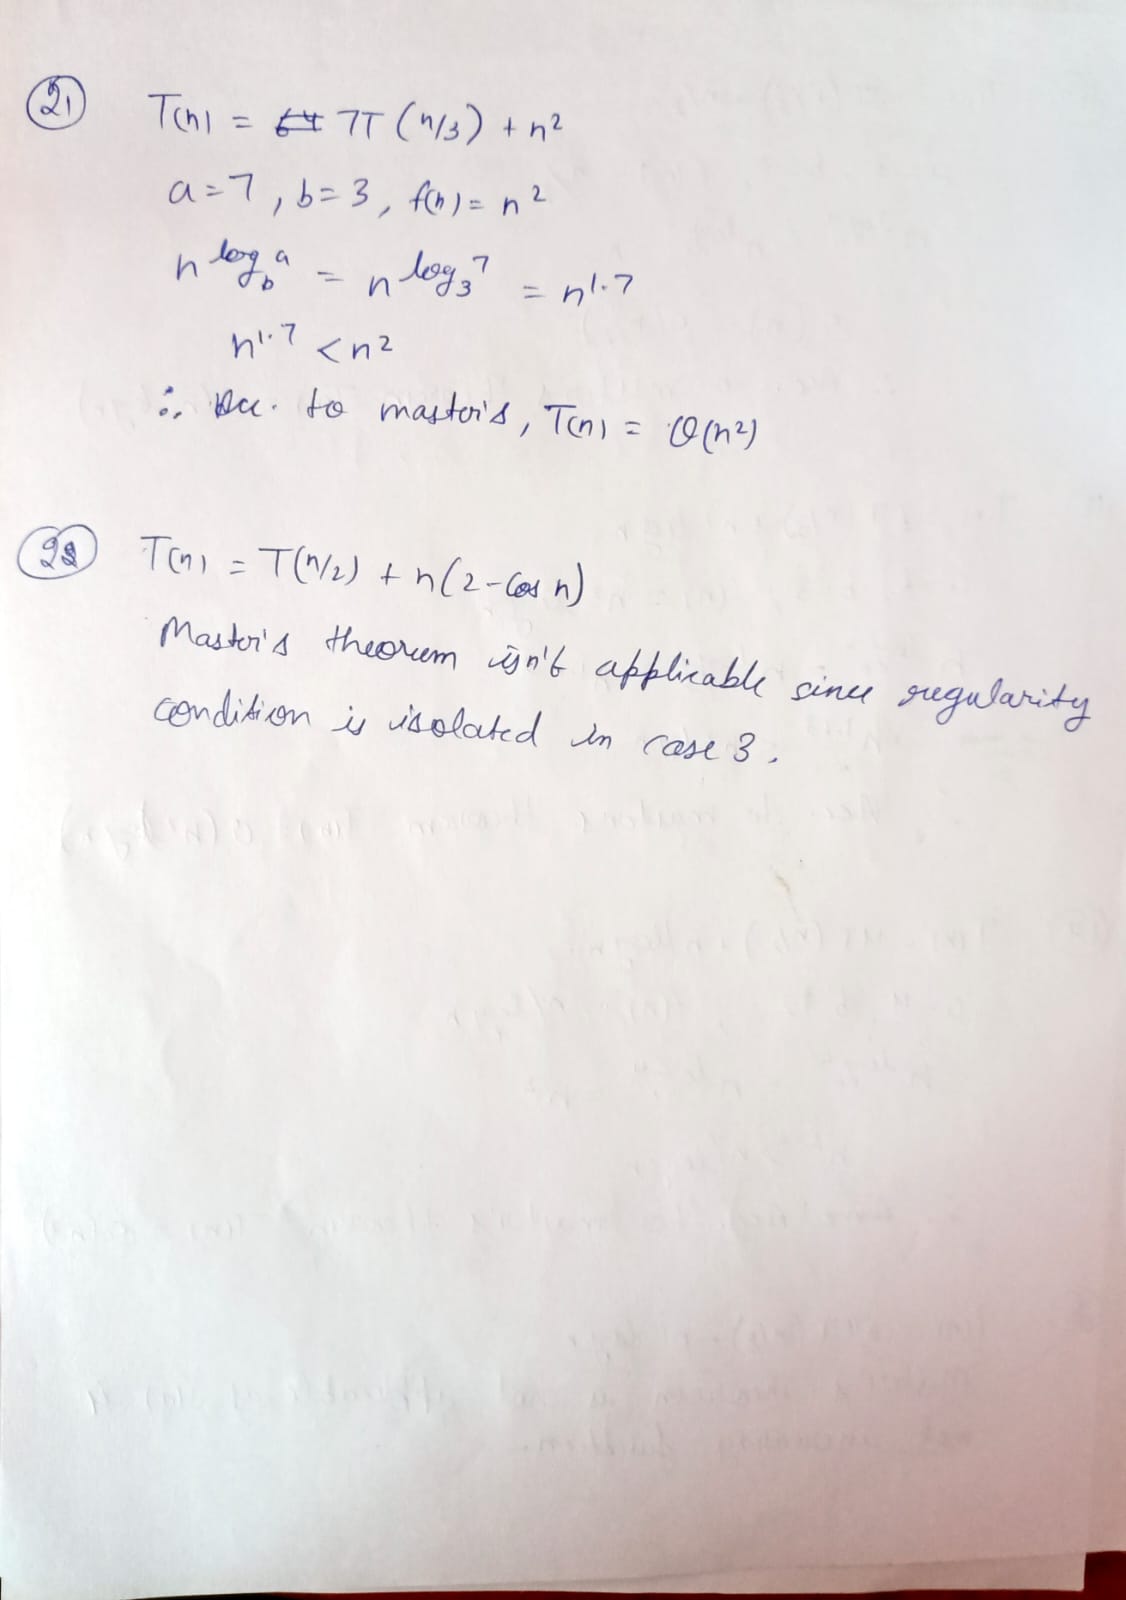 21 T(n) = 7T (n/3) + n²
a = 7, b = 3, f(n) = n²
n^log_b a = n^log_3 7 = n^1.7
n^1.7 < n²
∴ to master's, T(n) = Θ(n²)
22 T(n) = T(n/2) + n(2 - Cos n)
Master's theorem isn't applicable since regularity
condition is isolated in case 3.